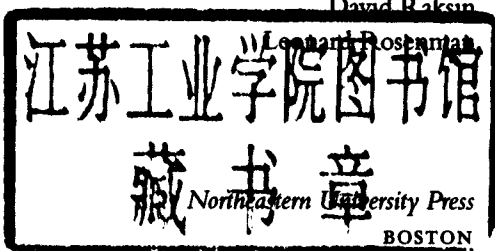 David Raksin
Leonard Rosenman
江苏工业学院图书馆
藏书章
Northeastern University Press
BOSTON